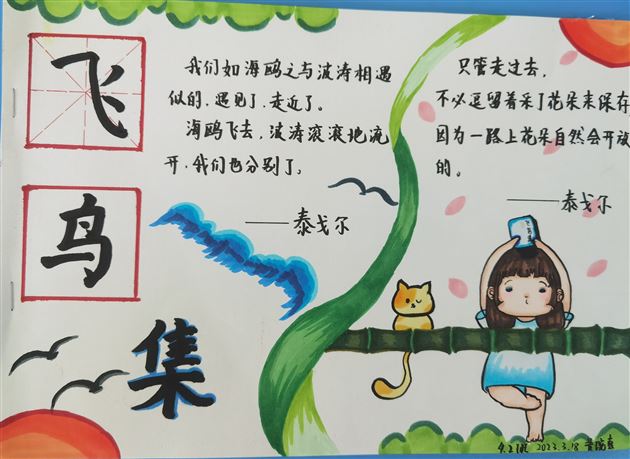 飞
鸟
集
我们如海鸥之与波涛相遇
似的,遇见了,走近了。
海鸥飞去,波涛滚滚地流
开,我们也分别了。
——泰戈尔
只管走过去,
不必逗留着采了花朵来保存,
因为一路上花朵自然会开放
的。
——泰戈尔
2023.3.18